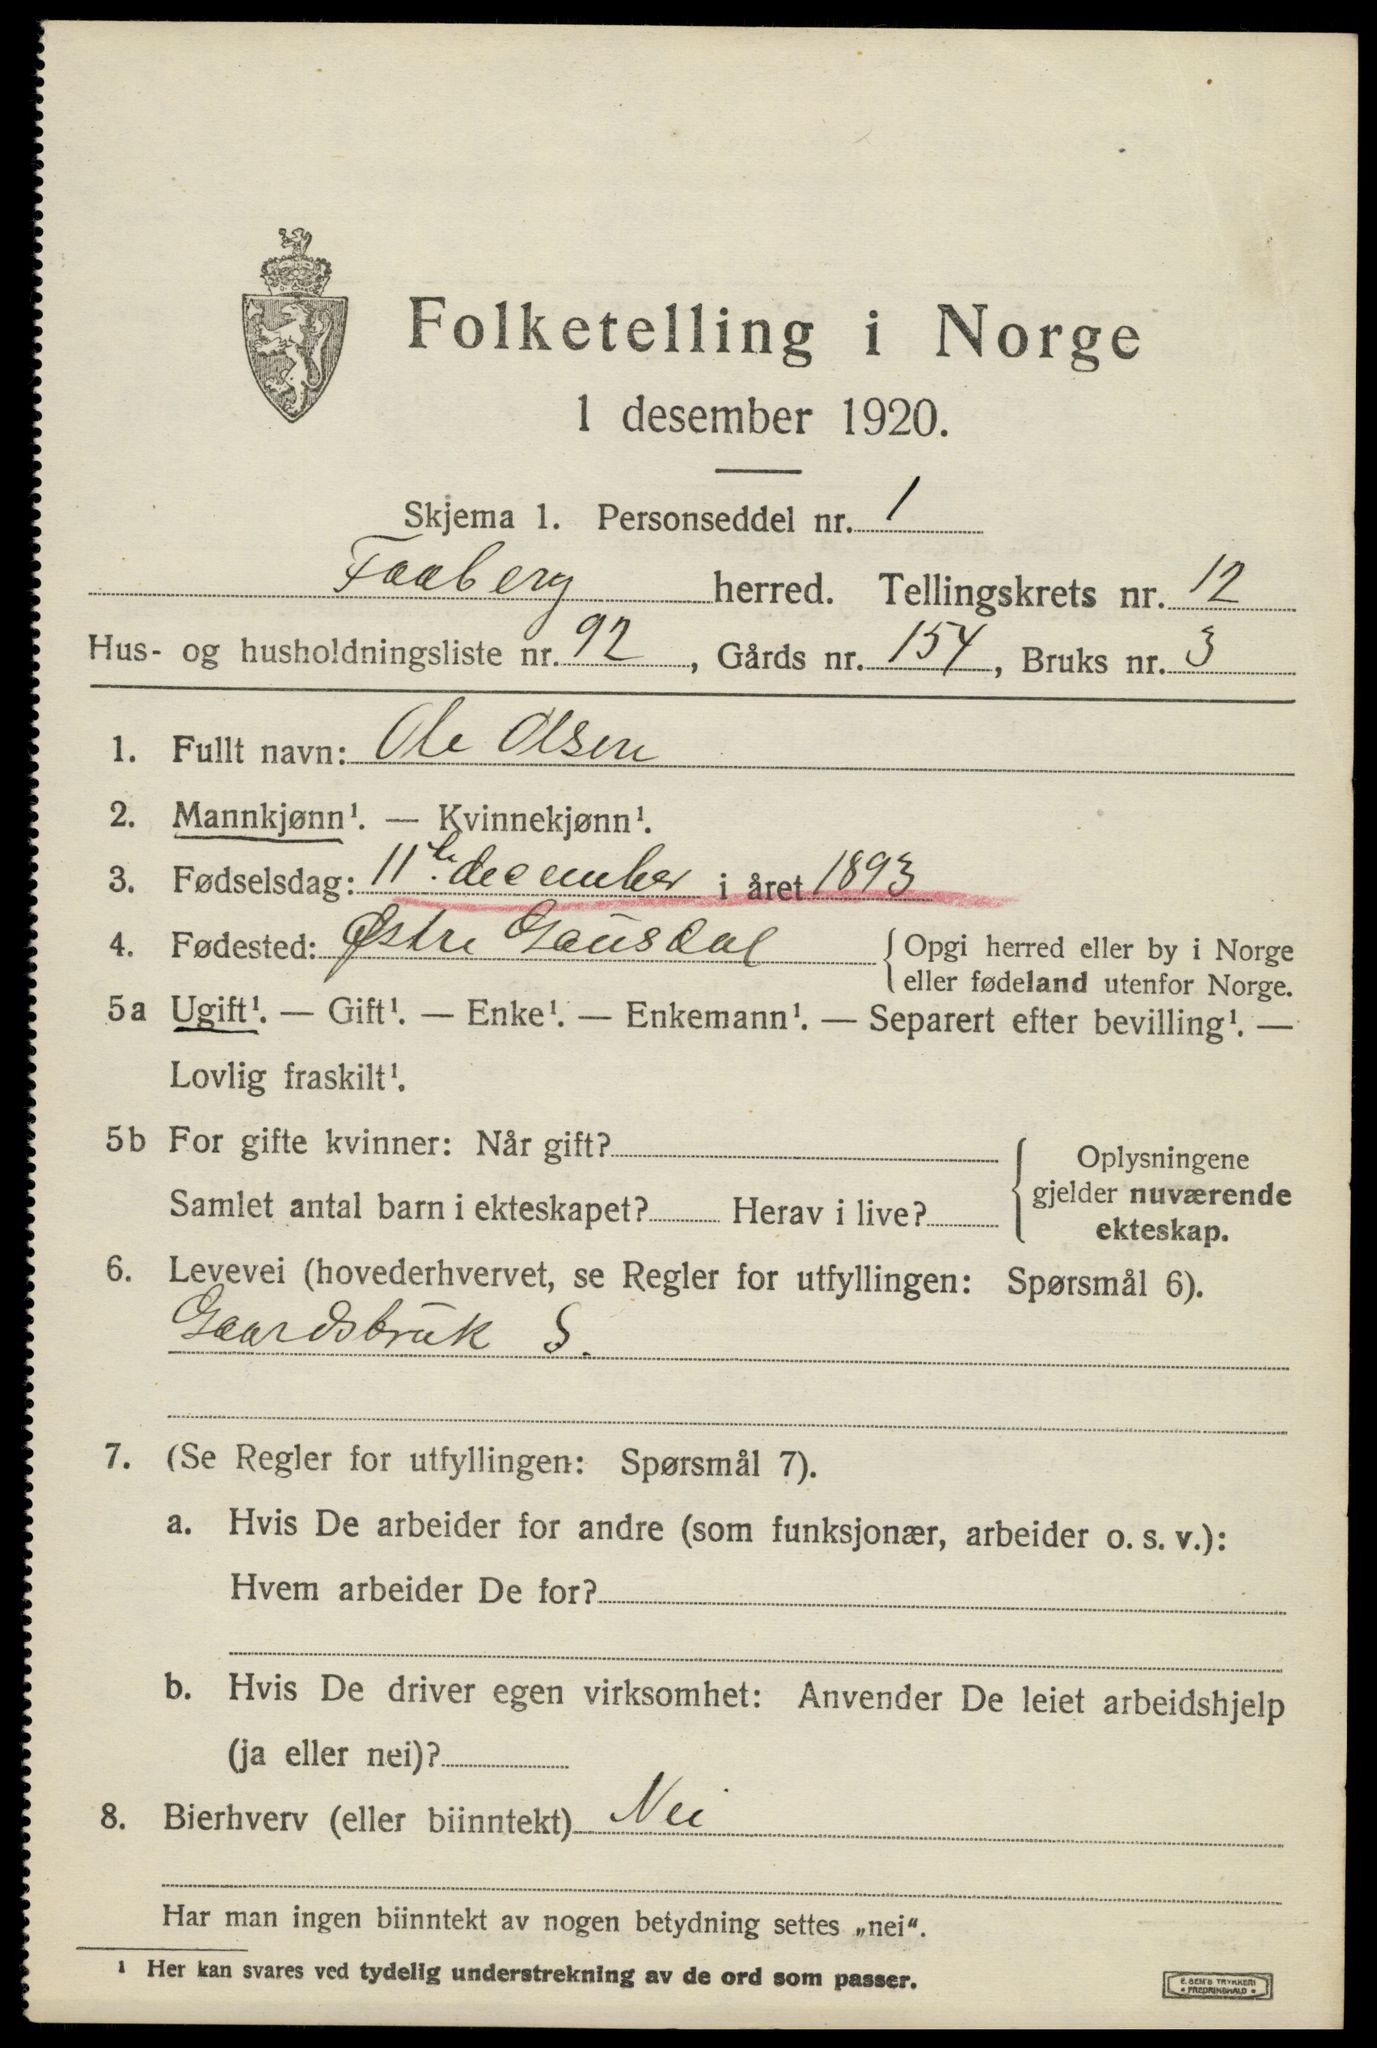 Folketelling i Norge
1 desember 1920.
Skjema 1. Personseddel nr. 1
Faaberg herred. Tellingskrets nr. 12
Hus- og husholdningsliste nr. 92, Gårds nr. 154, Bruks nr. 3
1. Fullt navn: Ole Olsen
2. Mannkjønn¹. — Kvinnekjønn¹.
3. Fødselsdag: 11te december i året 1893
4. Fødested: Østre Gausdal {Opgi herred eller by i Norge
eller fødeland utenfor Norge.
5a Ugift¹. — Gift¹. — Enke¹. — Enkemann¹. — Separert efter bevilling¹. —
Lovlig fraskilt¹.
5b For gifte kvinner: Når gift?
Samlet antal barn i ekteskapet? Herav i live?
Oplysningene
gjelder nuværende
ekteskap.
6. Levevei (hovederhvervet, se Regler for utfyllingen: Spørsmål 6).
Gaardsbruk S.
7. (Se Regler for utfyllingen: Spørsmål 7).
a. Hvis De arbeider for andre (som funksjonær, arbeider o. s. v.):
Hvem arbeider De for?
b. Hvis De driver egen virksomhet: Anvender De leiet arbeidshjelp
(ja eller nei)?
8. Bierhverv (eller biinntekt) Nei
Har man ingen biinntekt av nogen betydning settes „nei“.
¹ Her kan svares ved tydelig understrekning av de ord som passer.
E. SEM'S TRYKKERI
• FREDRIKSHALD •